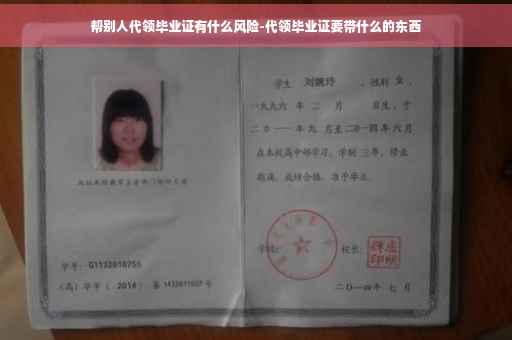 帮别人代领毕业证有什么风险-代领毕业证要带什么的东西
学生 刘婉玲 ，性别 女 ，
一九九六 年 二 月 日生，于
二〇一一年九 月至二〇一四年六月
在本校高中部学习，学制 三年，修业
期满，成绩合格，准予毕业。
学号：G1132010755
（高）毕字（ 2014 ）第 1432011027 号
学校：
校长：
二〇一四年 七 月